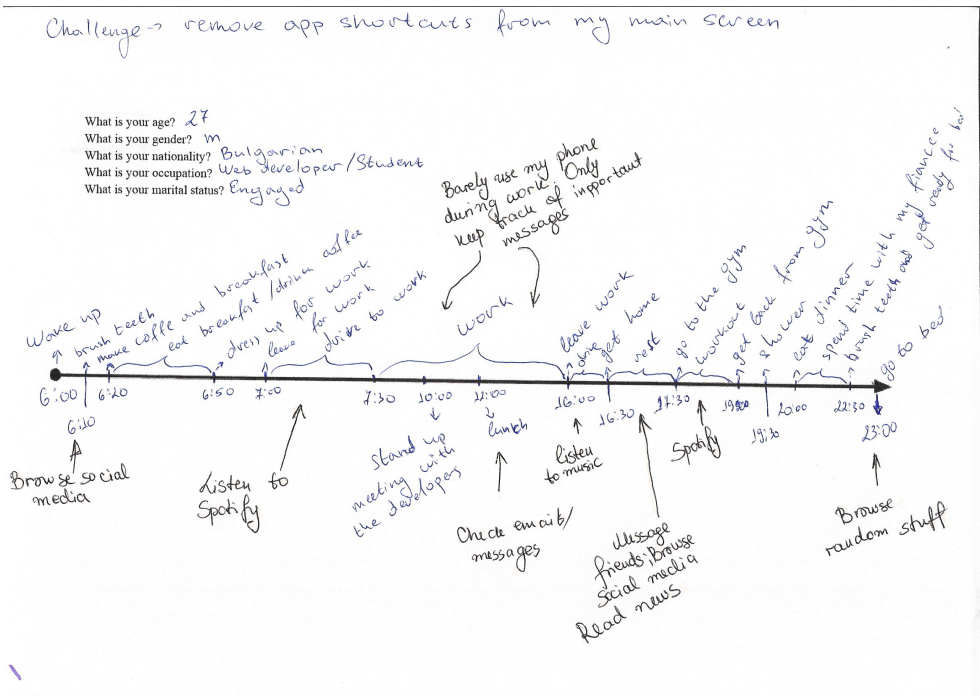 Challenge → remove app shortcuts from my main screen
What is your age? 27
What is your gender? m
What is your nationality? Bulgarian
What is your occupation? Web developer/Student
What is your marital status? Engaged
Barely use my phone
during work. Only
keep track of inpportant
messages
Wake up
brush teeth
make coffe and breakfast
eat breakfast/drink coffee
dress up for work
leave for work
drive to work
work
leave work
drive
get home
rest
go to the gym
workout
get back from gym
shower
eat dinner
spend time with my fiancee
brush teeth and get ready for bed
go to bed
6:00
6:10
6:20
6:50
7:00
7:30
10:00
12:00
16:00
16:30
17:30
19:00
19:30
20:00
22:30
23:00
stand up
meeting with
the developers
lunch
Browse social
media
Listen to
Spotify
Check email/
messages
listen
to music
Message
friends; Browse
social media
Read news
Spotify
Browse
random stuff